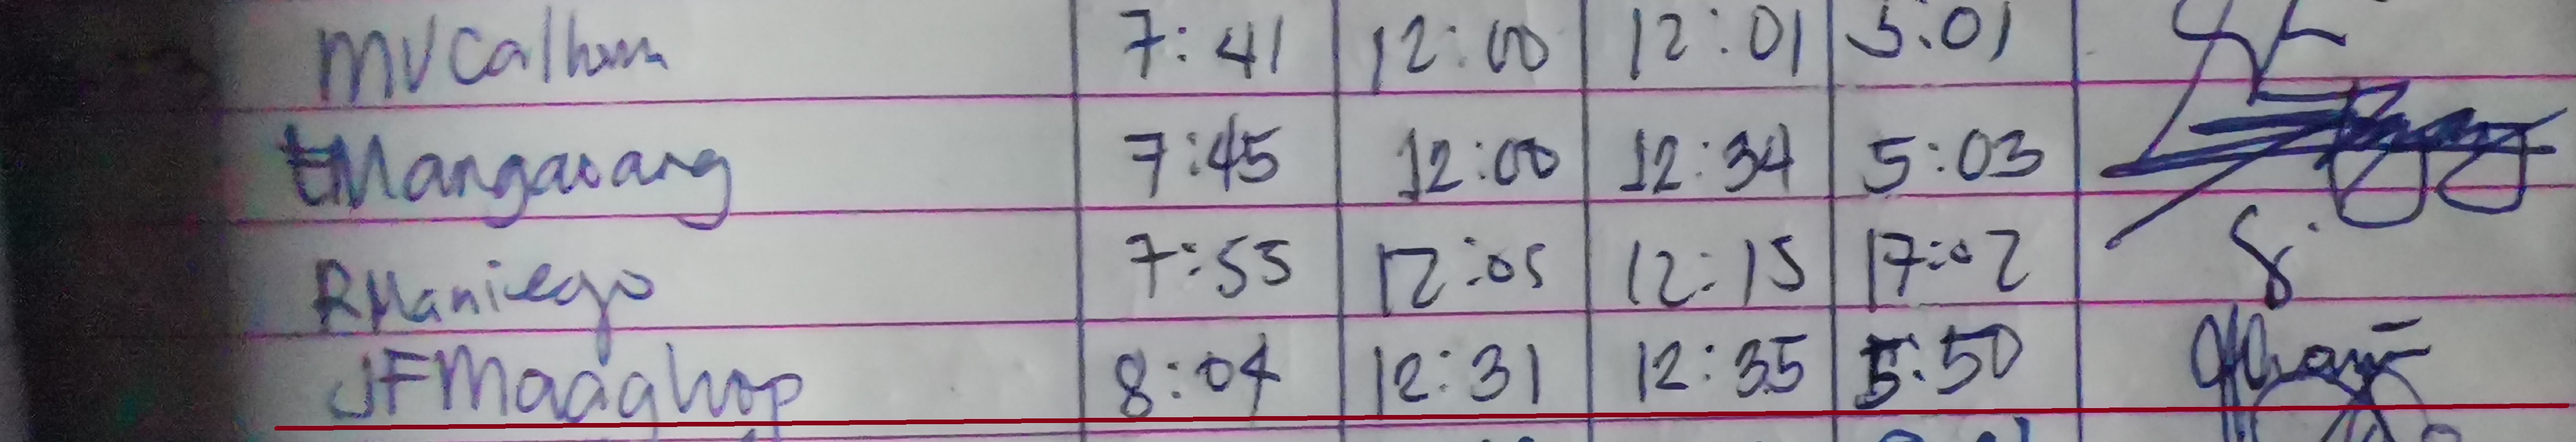 MVCalhum 7:41 12:00 12:01 5:01
Mangaoang 7:45 12:00 12:34 5:03
RManiego 7:55 12:05 12:15 17:02
8:04 12:31 12:35 5:50